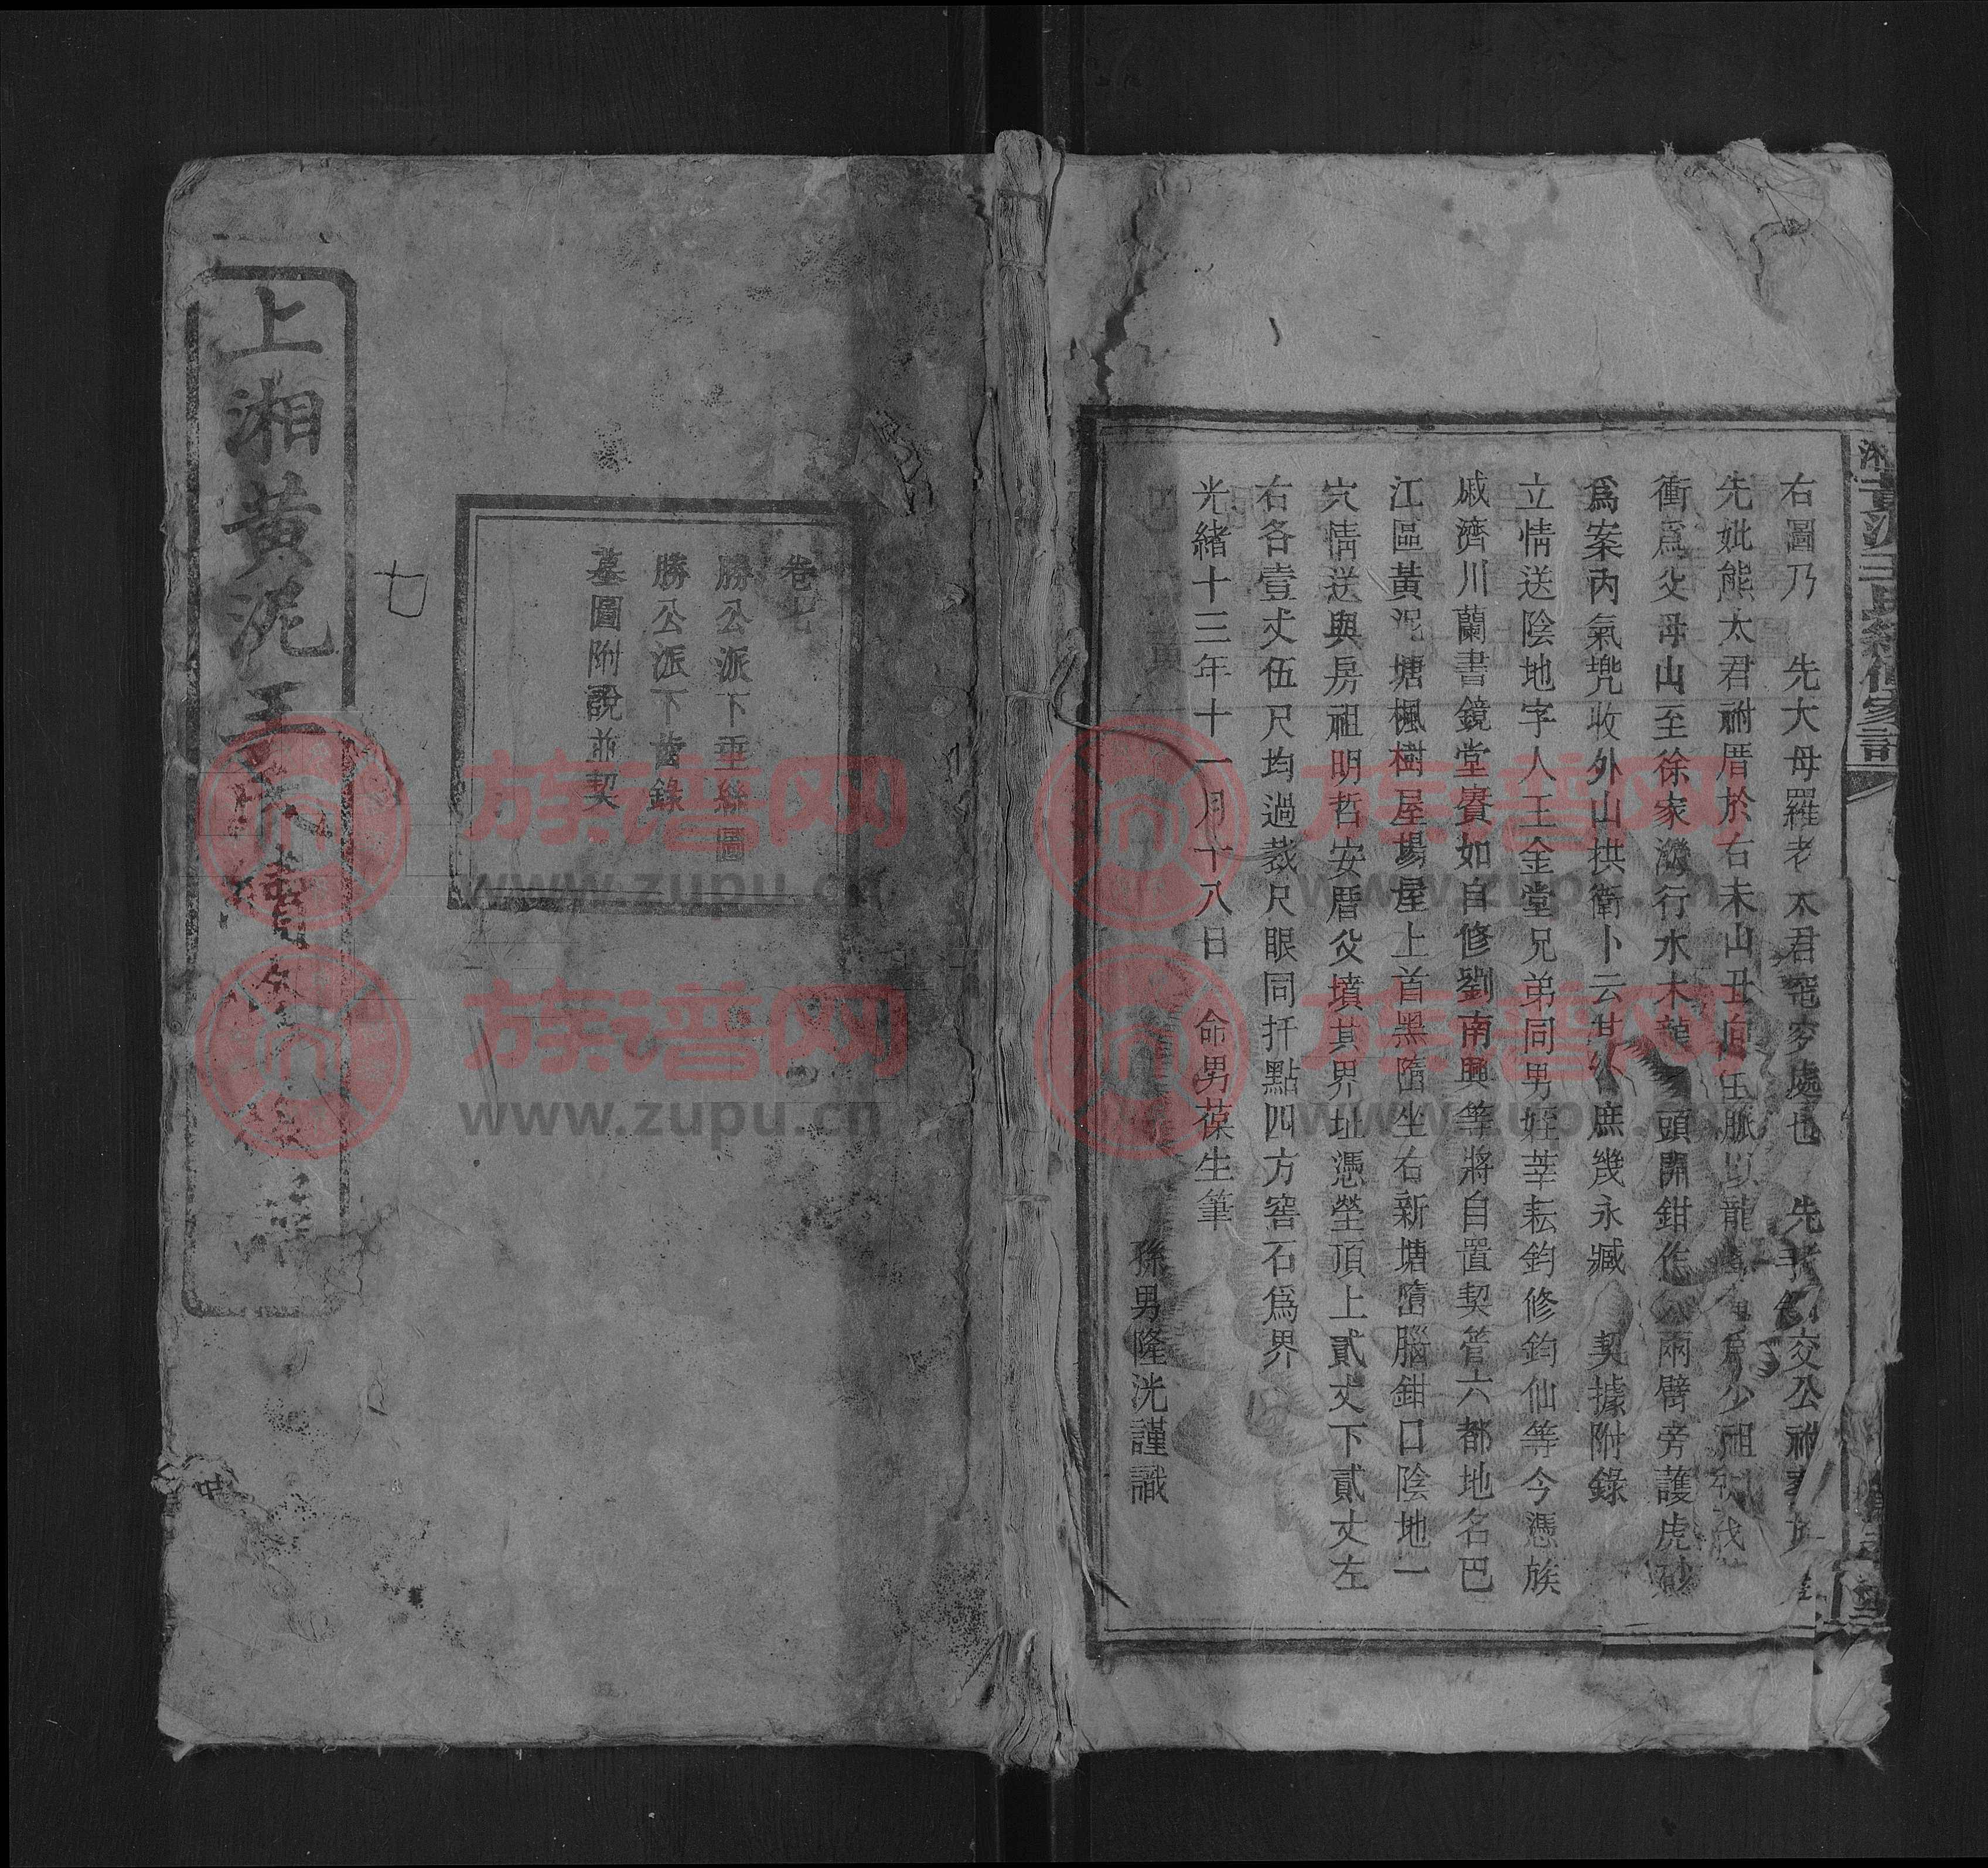 湘黃泥王氏續修家譜
右圖乃 先大母羅老太君窀穸處也 先 交公祔葬
先妣熊太君祔厝於右未山丑向壬脈以龍 爲少祖
衝爲父母山至徐家灣行水木龍 頭開鉗作 兩臂旁護虎砂
爲案內氣兜收外山拱衛卜云其 庶幾永臧 契據附錄
立情送陰地字人王金堂兄弟同男姪莘耘鈞修鈞仙等今憑族
戚濟川蘭書鏡堂賡如自修劉南興等將自置契管六都地名巴
江區黃泥塘楓樹屋場屋上首黑墮坐右新塘墮腦鉗口陰地一
穴情送與房祖明哲安厝父墳其界址憑塋頂上貳丈下貳丈左
右各壹丈伍尺均過裁尺眼同扦點四方窖石爲界
光緒十三年十一月十八日 命男葆生筆
孫男隆洸謹識
卷七
勝公派下垂絲圖
勝公派下齒錄
墓圖附說並契
七
上湘黃泥王氏續修族譜
族谱网
www.zupu.cn
族谱网
www.zupu.cn
族谱网
www.zupu.cn
族谱网
www.zupu.cn